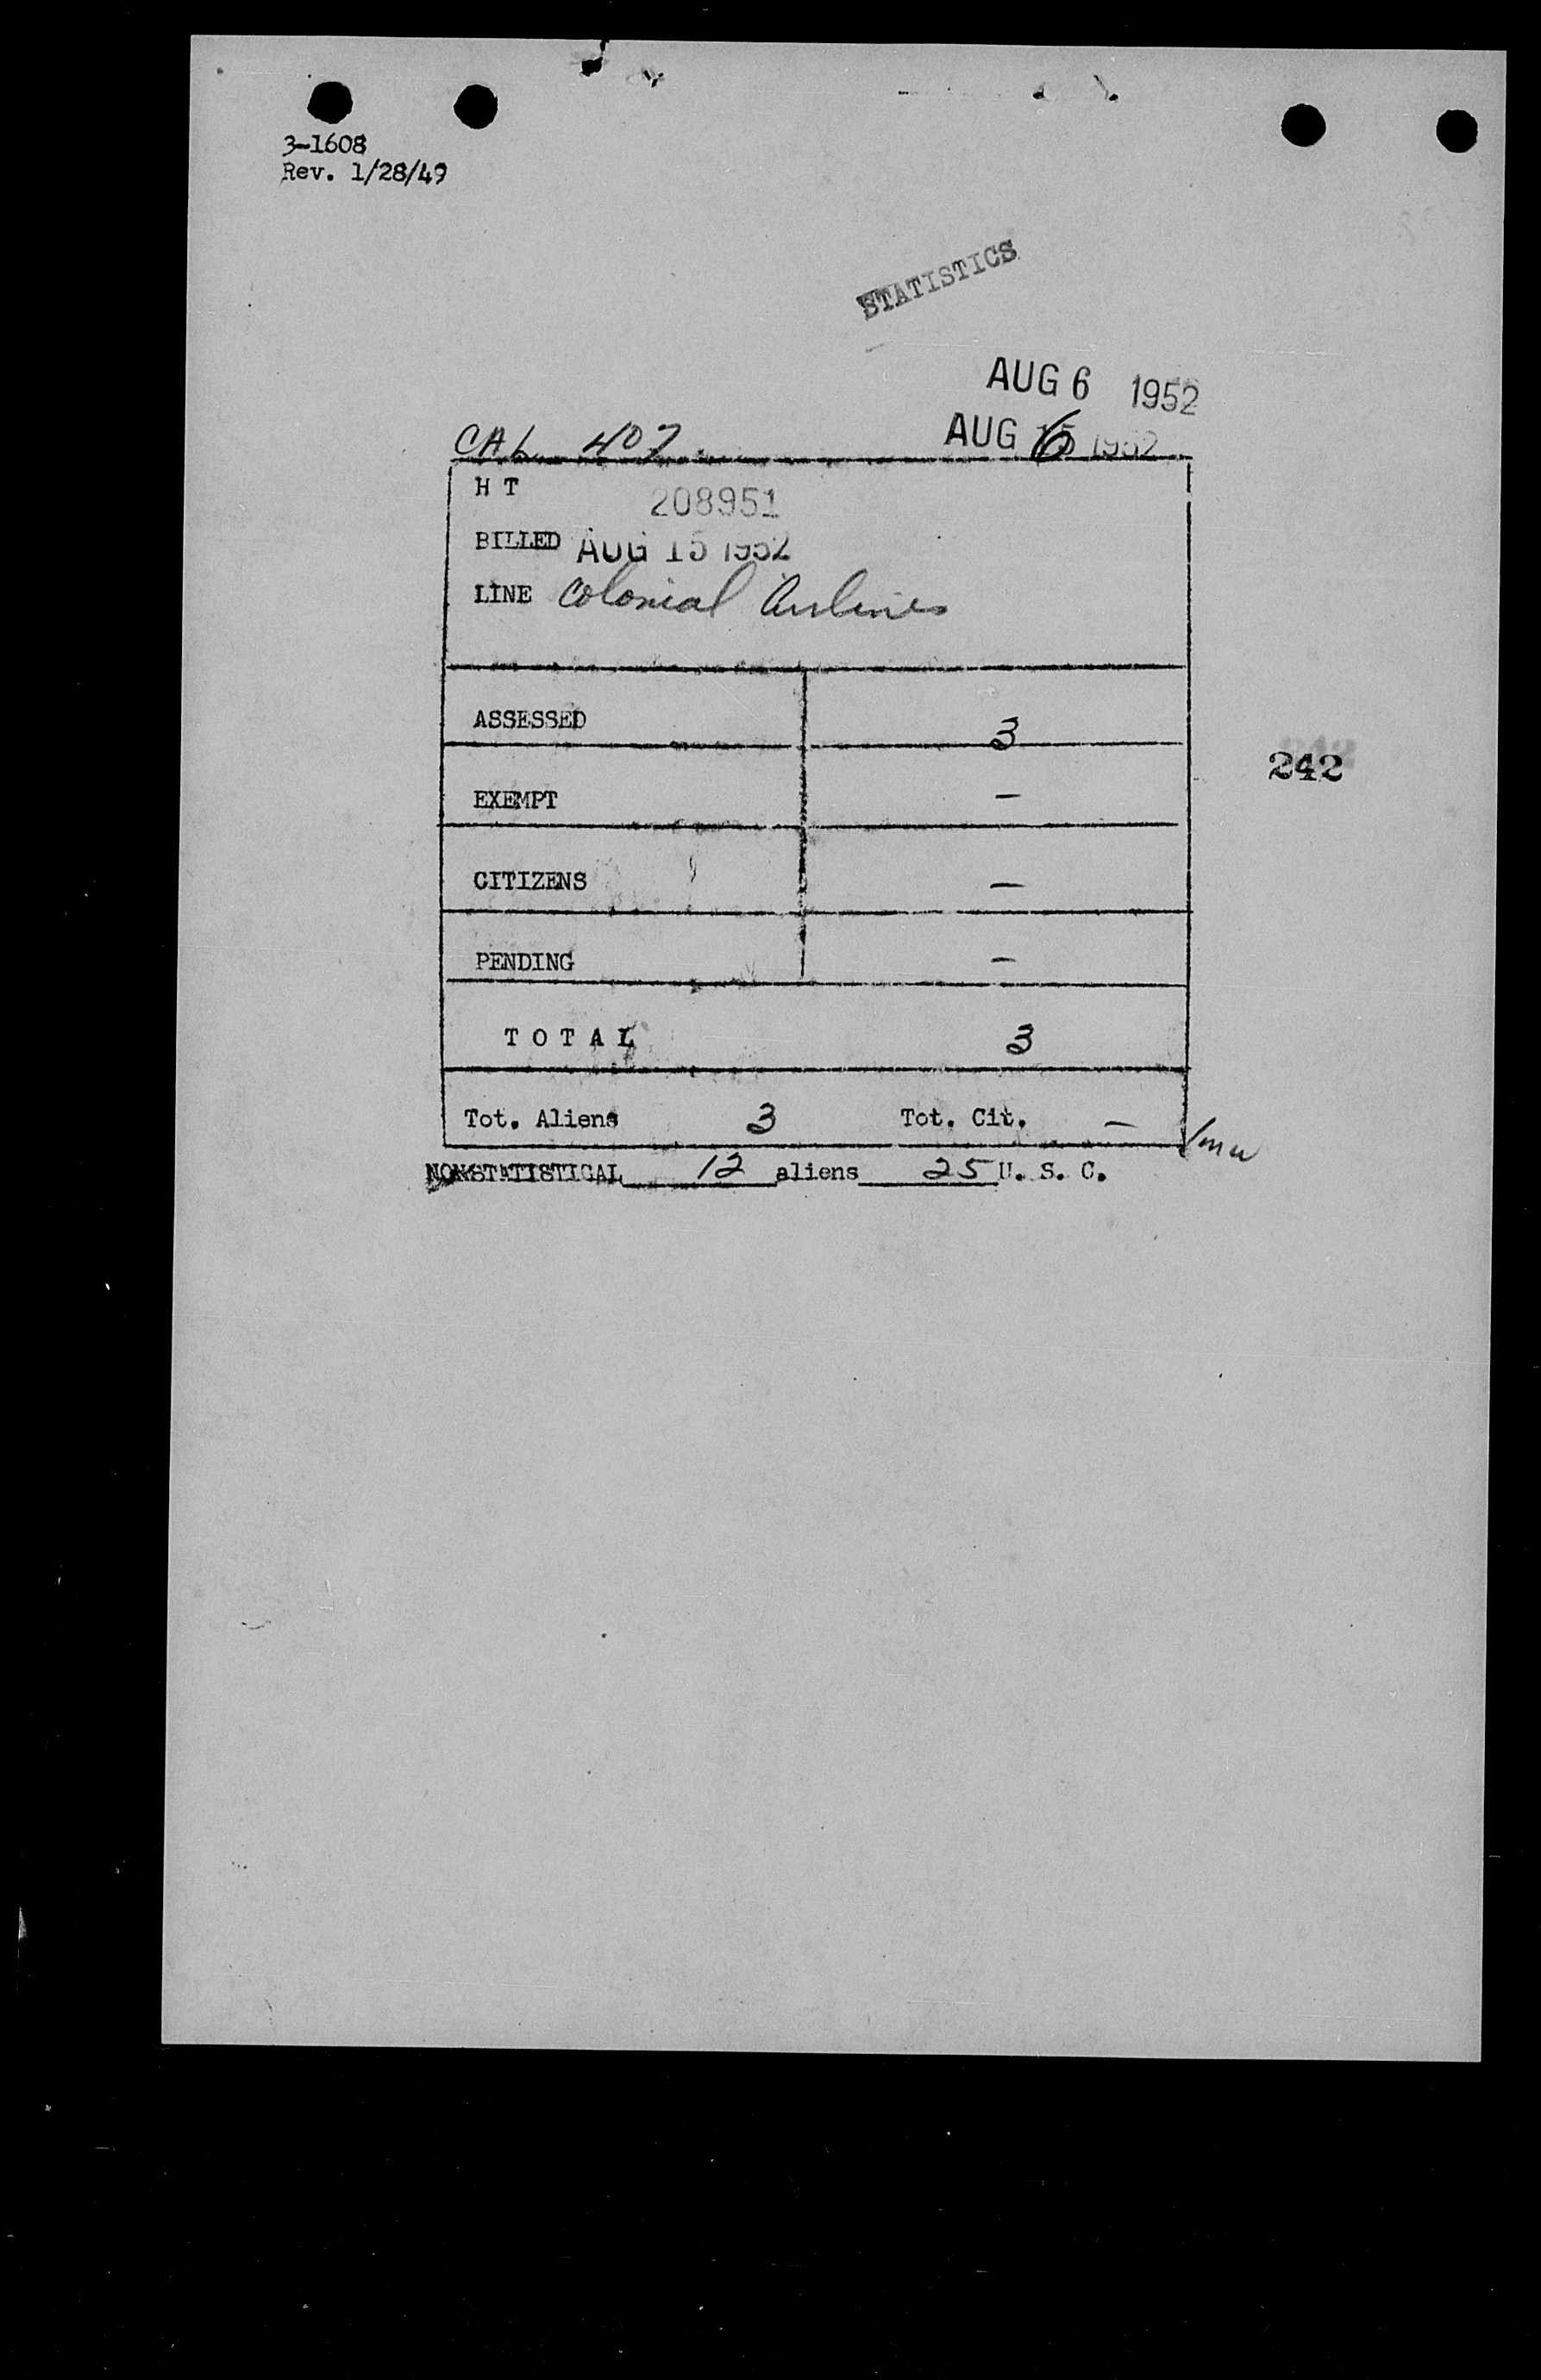 3-1608
Rev. 1/28/49
STATISTICS
AUG 6 1952
CAL 407 AUG 6 1952
H T 208951
BILLED AUG 15 1952
LINE Colonial Airlines
ASSESSED 3
242
EXEMPT —
CITIZENS —
PENDING —
T O T A L 3
Tot. Aliens 3 Tot. Cit. —
NONSTATISTICAL 12 aliens 25 U. S. C.